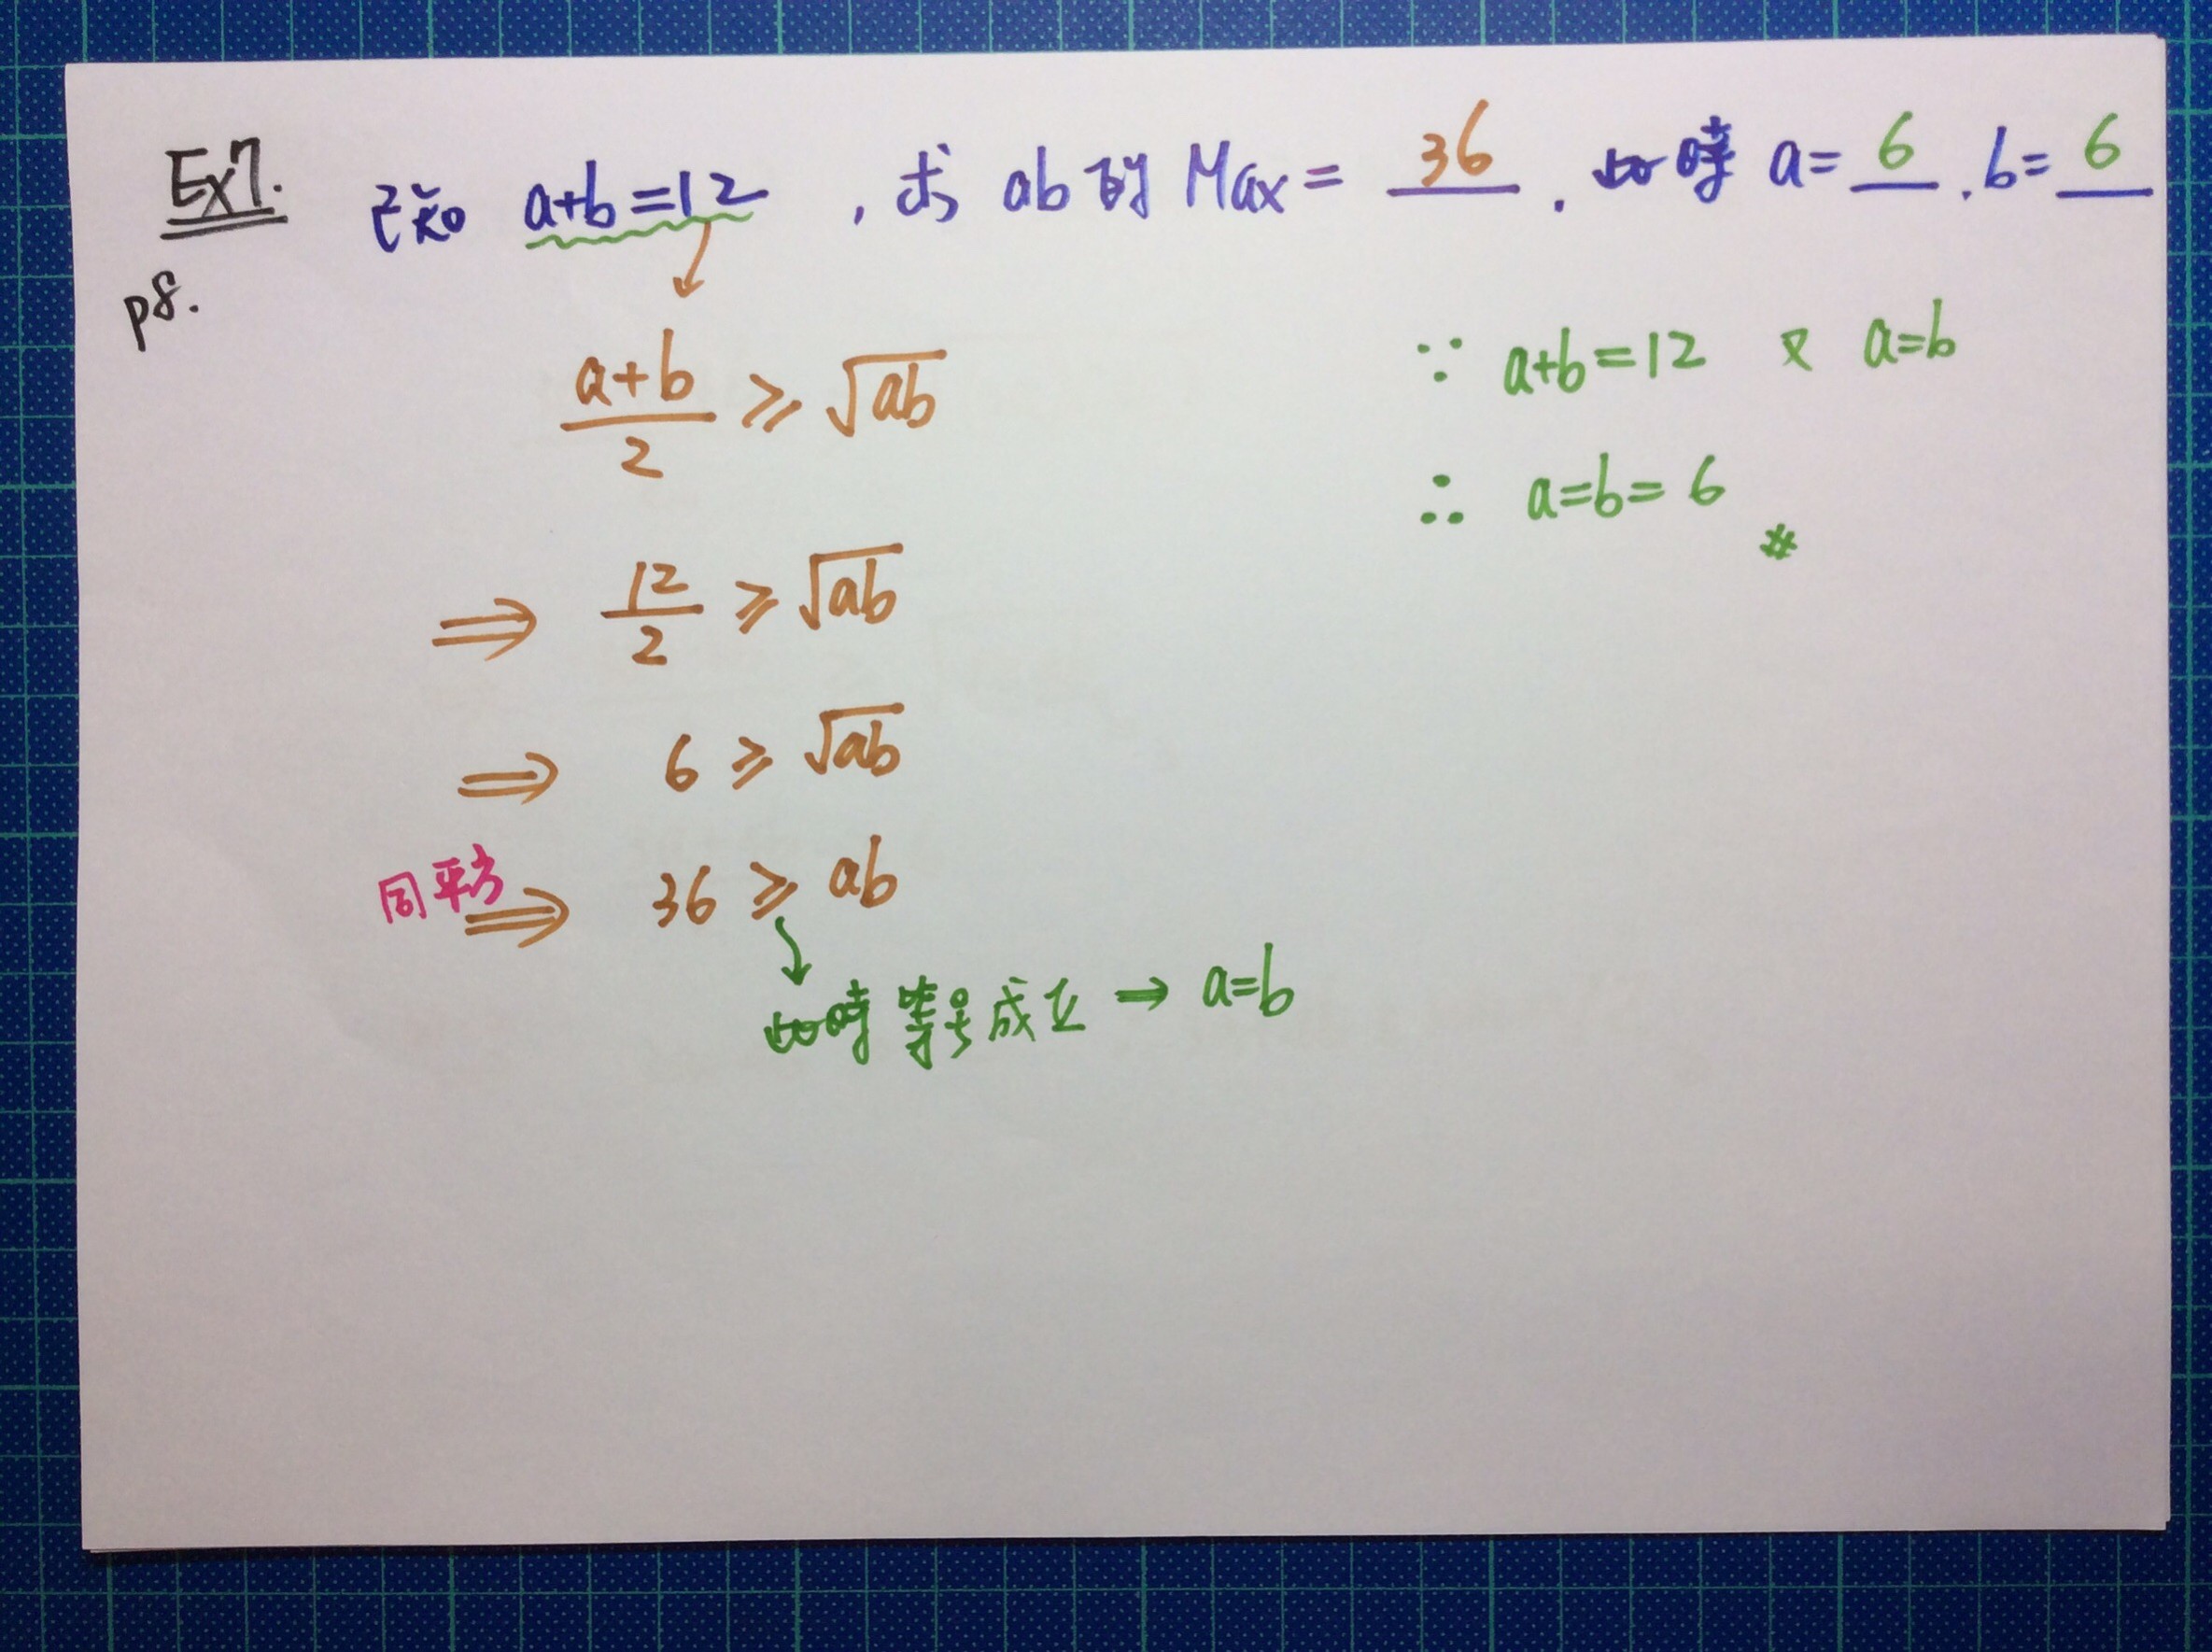 Ex7. 已知 a+b=12 , 求 ab 的 Max = 36 . 此時 a= 6 . b= 6
p8.
a+b/2 ≥ √ab
⇒ 12/2 ≥ √ab
⇒ 6 ≥ √ab
同平方 ⇒ 36 ≥ ab
此時 等号成立 → a=b
∵ a+b=12 又 a=b
∴ a=b=6 #